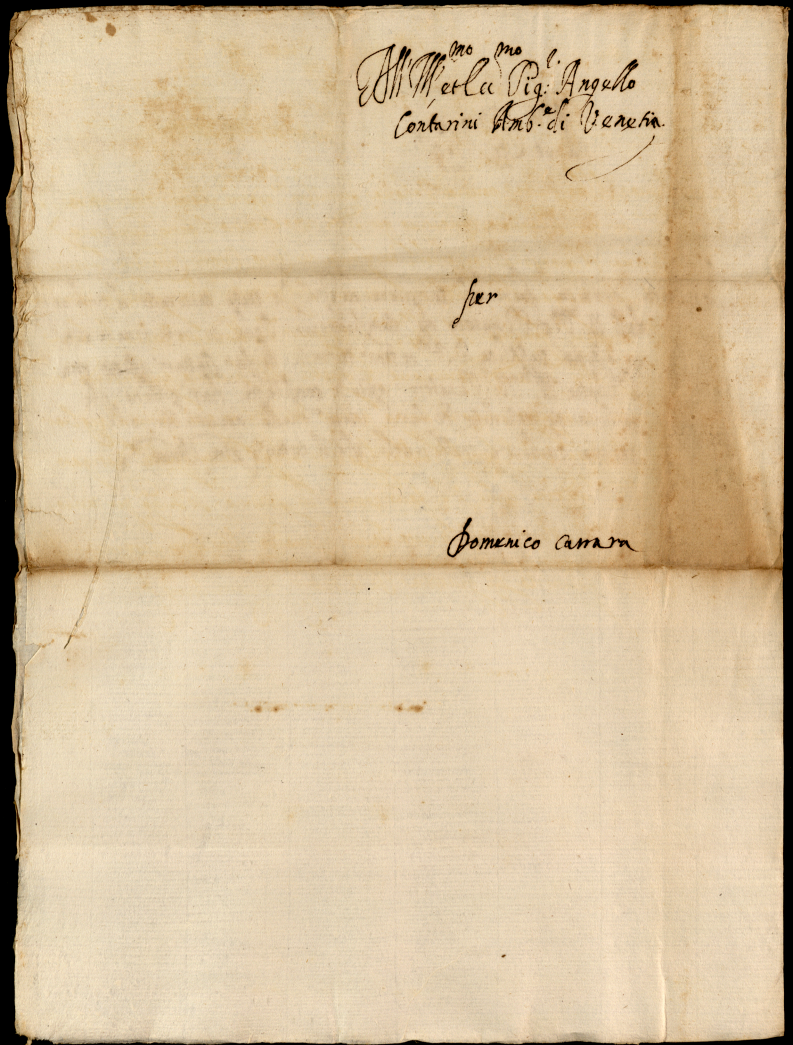 All'Ill^mo et Ecc^mo Sig.^r Angello
Contarini Amb.^e di Venetia.
per
Domenico Carrara